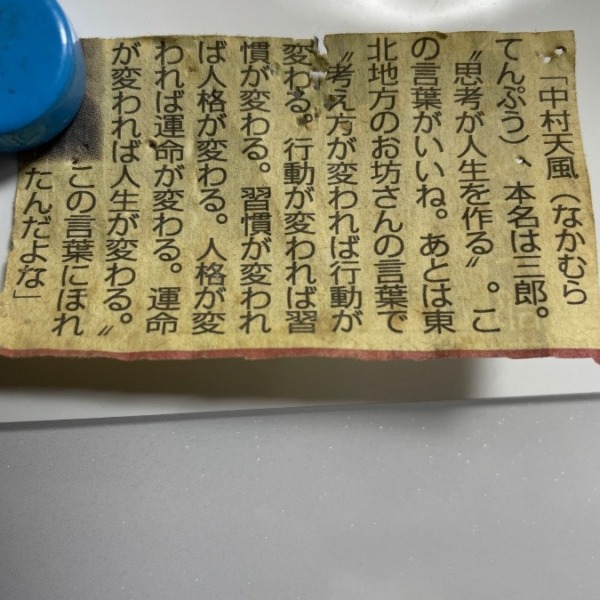 「中村天風(なかむら
てんぷう) 本名は三郎。
〝思考が人生を作る〟。こ
の言葉がいいね。あとは東
北地方のお坊さんの言葉で
〝考え方が変われば行動が
変わる。行動が変われば習
慣が変わる。習慣が変われ
ば人格が変わる。人格が変
われば運命が変わる。運命
が変われば人生が変わる。〟
この言葉にほれ
たんだよな」